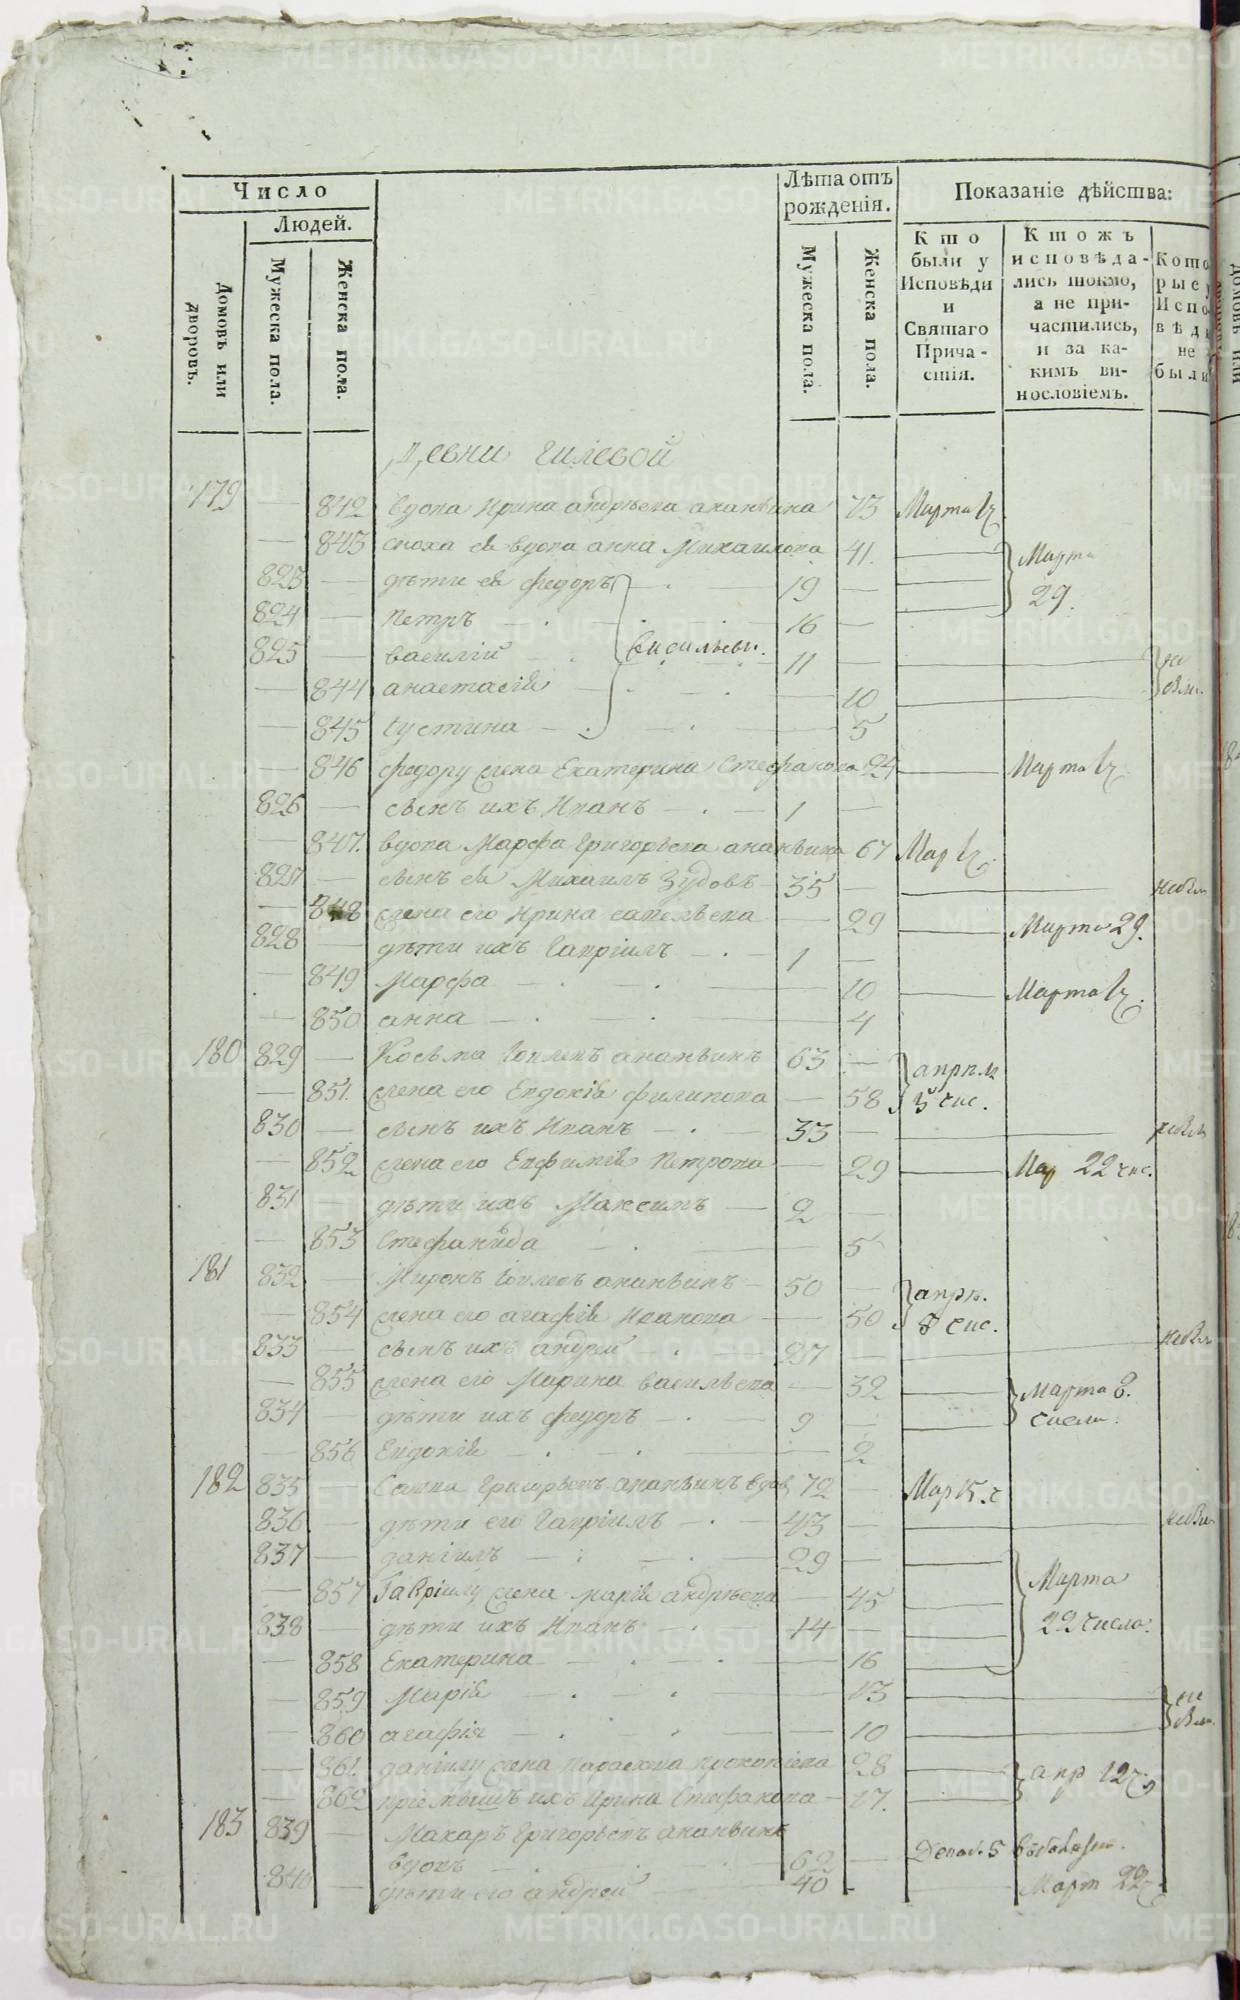 Число
Людей.
Домовъ или дворовъ.
Мужеска пола.
Женска пола.
Лѣта отъ рожденія.
Мужеска пола.
Женска пола.
Показаніе дѣйства:
Кто были у Исповѣди и Святаго Причастія.
Ктожъ исповѣдались токмо, а не причастились, и за какимъ винословіемъ.
Которые у Исповѣди не были
Девни Гилевой
179 — 842 вдова Ирина андрѣева ананьина 73 Марта
— 843 сноха ея вдова анна Михаилова 41. — Марта 29.
823 — дѣти ея федоръ 19 —
824 — Петръ 16 —
825 — василий Васильевы. 11 —
— 844 анастасія — 10
— 845 Іустина — 5
— 846 федору жена Екатерина Стефанова 24 — Марта
826 — сынъ ихъ Иванъ 1 —
— 847. вдова Марфа Григорьева ананьина 67 Мар
827 — сынъ ея Михаилъ Зудовъ 35 —
— 848 жена его Ирина савельева — 29 — Марта 29.
828 — дѣти ихъ Гавріилъ 1 —
— 849 Марфа — 10 — Марта
— 850 анна — 4
180 829 — Косьма ананьинъ 63 — апрѣля
— 851. жена его Евдокія филипова — 58 5 чис.
830 — сынъ ихъ Иванъ 33 —
— 852 жена его Евфимія Петрова — 29 — Мар 22 чис.
831 — дѣти ихъ Максимъ 2 —
— 853 Стефанида — 5
181 832 — Миронъ ананьинъ 50 — апрѣ.
— 854 жена его агафія Иванова — 50 5 чис.
833 — сынъ ихъ андрей 27 —
— 855 жена его Марина васильева — 32 — Марта 8.
834 — дѣти ихъ федоръ 9 — числа.
— 856 Евдокія — 2
182 835 — Савва Григорьевъ ананьинъ вдов 72 — Мар 15. ч
836 — дѣти его Гавріилъ 43 —
837 — даніилъ 29 —
— 857 Гавріилу жена марія андрѣева — 45 — Марта
838 — дѣти ихъ Иванъ 14 — 22 число.
— 858 Екатерина — 16
— 859 Марія — 13
— 860 агафія — 10
— 861. даніилу жена параскева прокопіева — 28 — апр 12
— 862 ихъ Ирина Стефанова — 17.
183 839 — Макаръ Григорьевъ ананьинъ
вдовъ 62 —
840 — дѣти его андрей 40 — Март 22
METRIKI.GASO-URAL.RU